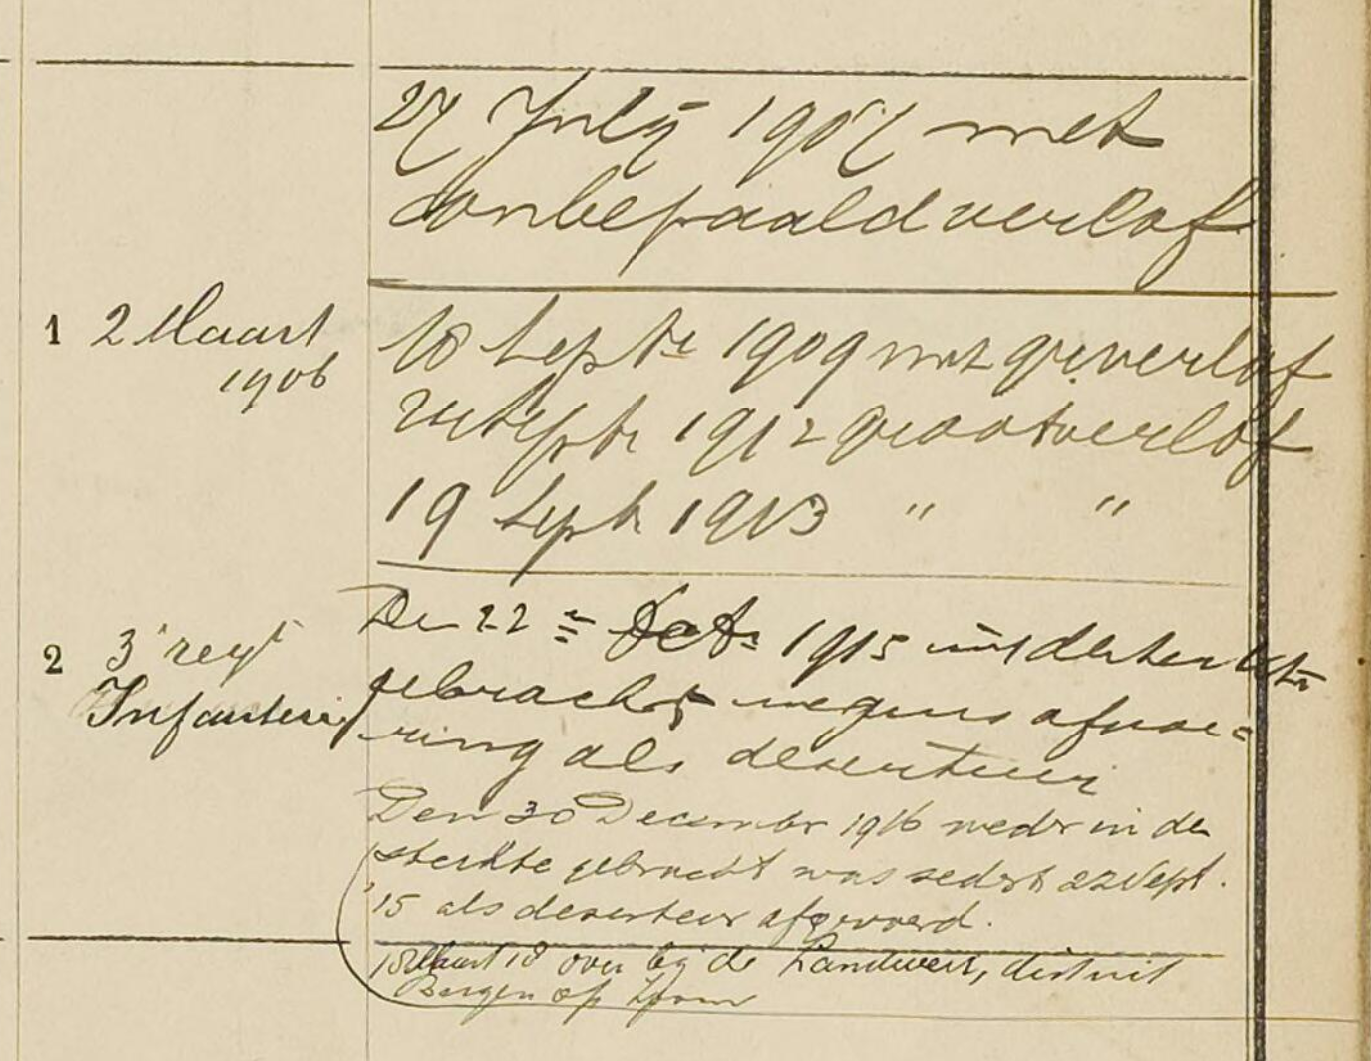 27 July 1907 met
onbepaald verlof
1 2 Maart
1906
18 Septr 1909 met gr. verlof
Septr 1912 groot verlof
19 Septr 1913 " "
2 3e regt
Infanterie
Den 22e Octr 1915 uit de sterkte
gebracht wegens afvoe=
ring als deserteur
Den 30 December 1916 weder in de
sterkte gebracht was sedert 22 Sept.
'15 als deserteur afgevoerd.
15 Maart 18 over bij de Landweer, district
Bergen op Zoom